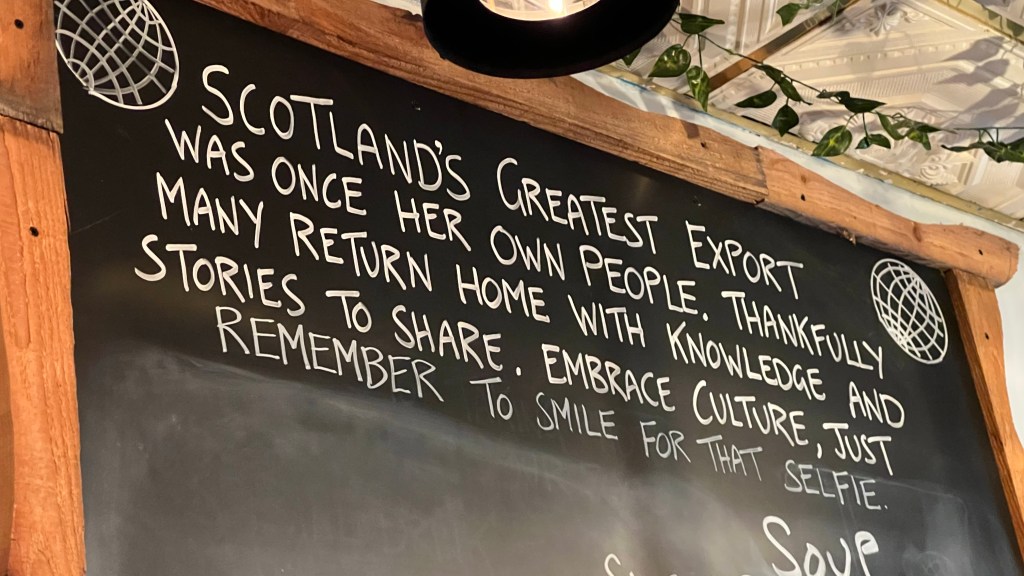 SCOTLAND'S GREATEST EXPORT
WAS ONCE HER OWN PEOPLE. THANKFULLY
MANY RETURN HOME WITH KNOWLEDGE AND
STORIES TO SHARE. EMBRACE CULTURE, JUST
REMEMBER TO SMILE FOR THAT SELFIE.
SOUP